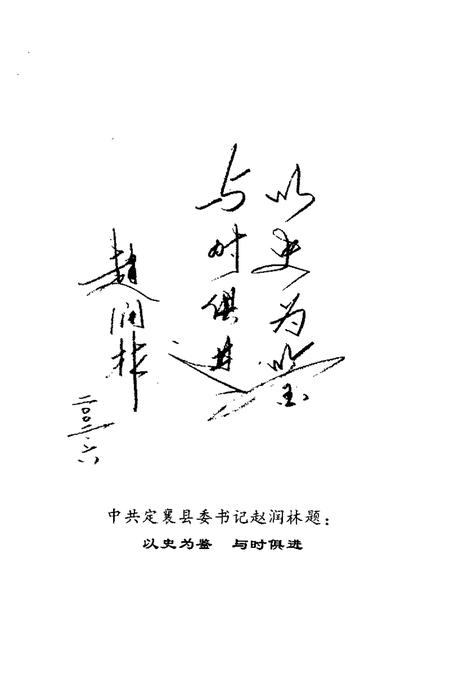 以史为鉴
与时俱进
赵润林
二〇〇二·六
中共定襄县委书记赵润林题：
以史为鉴 与时俱进